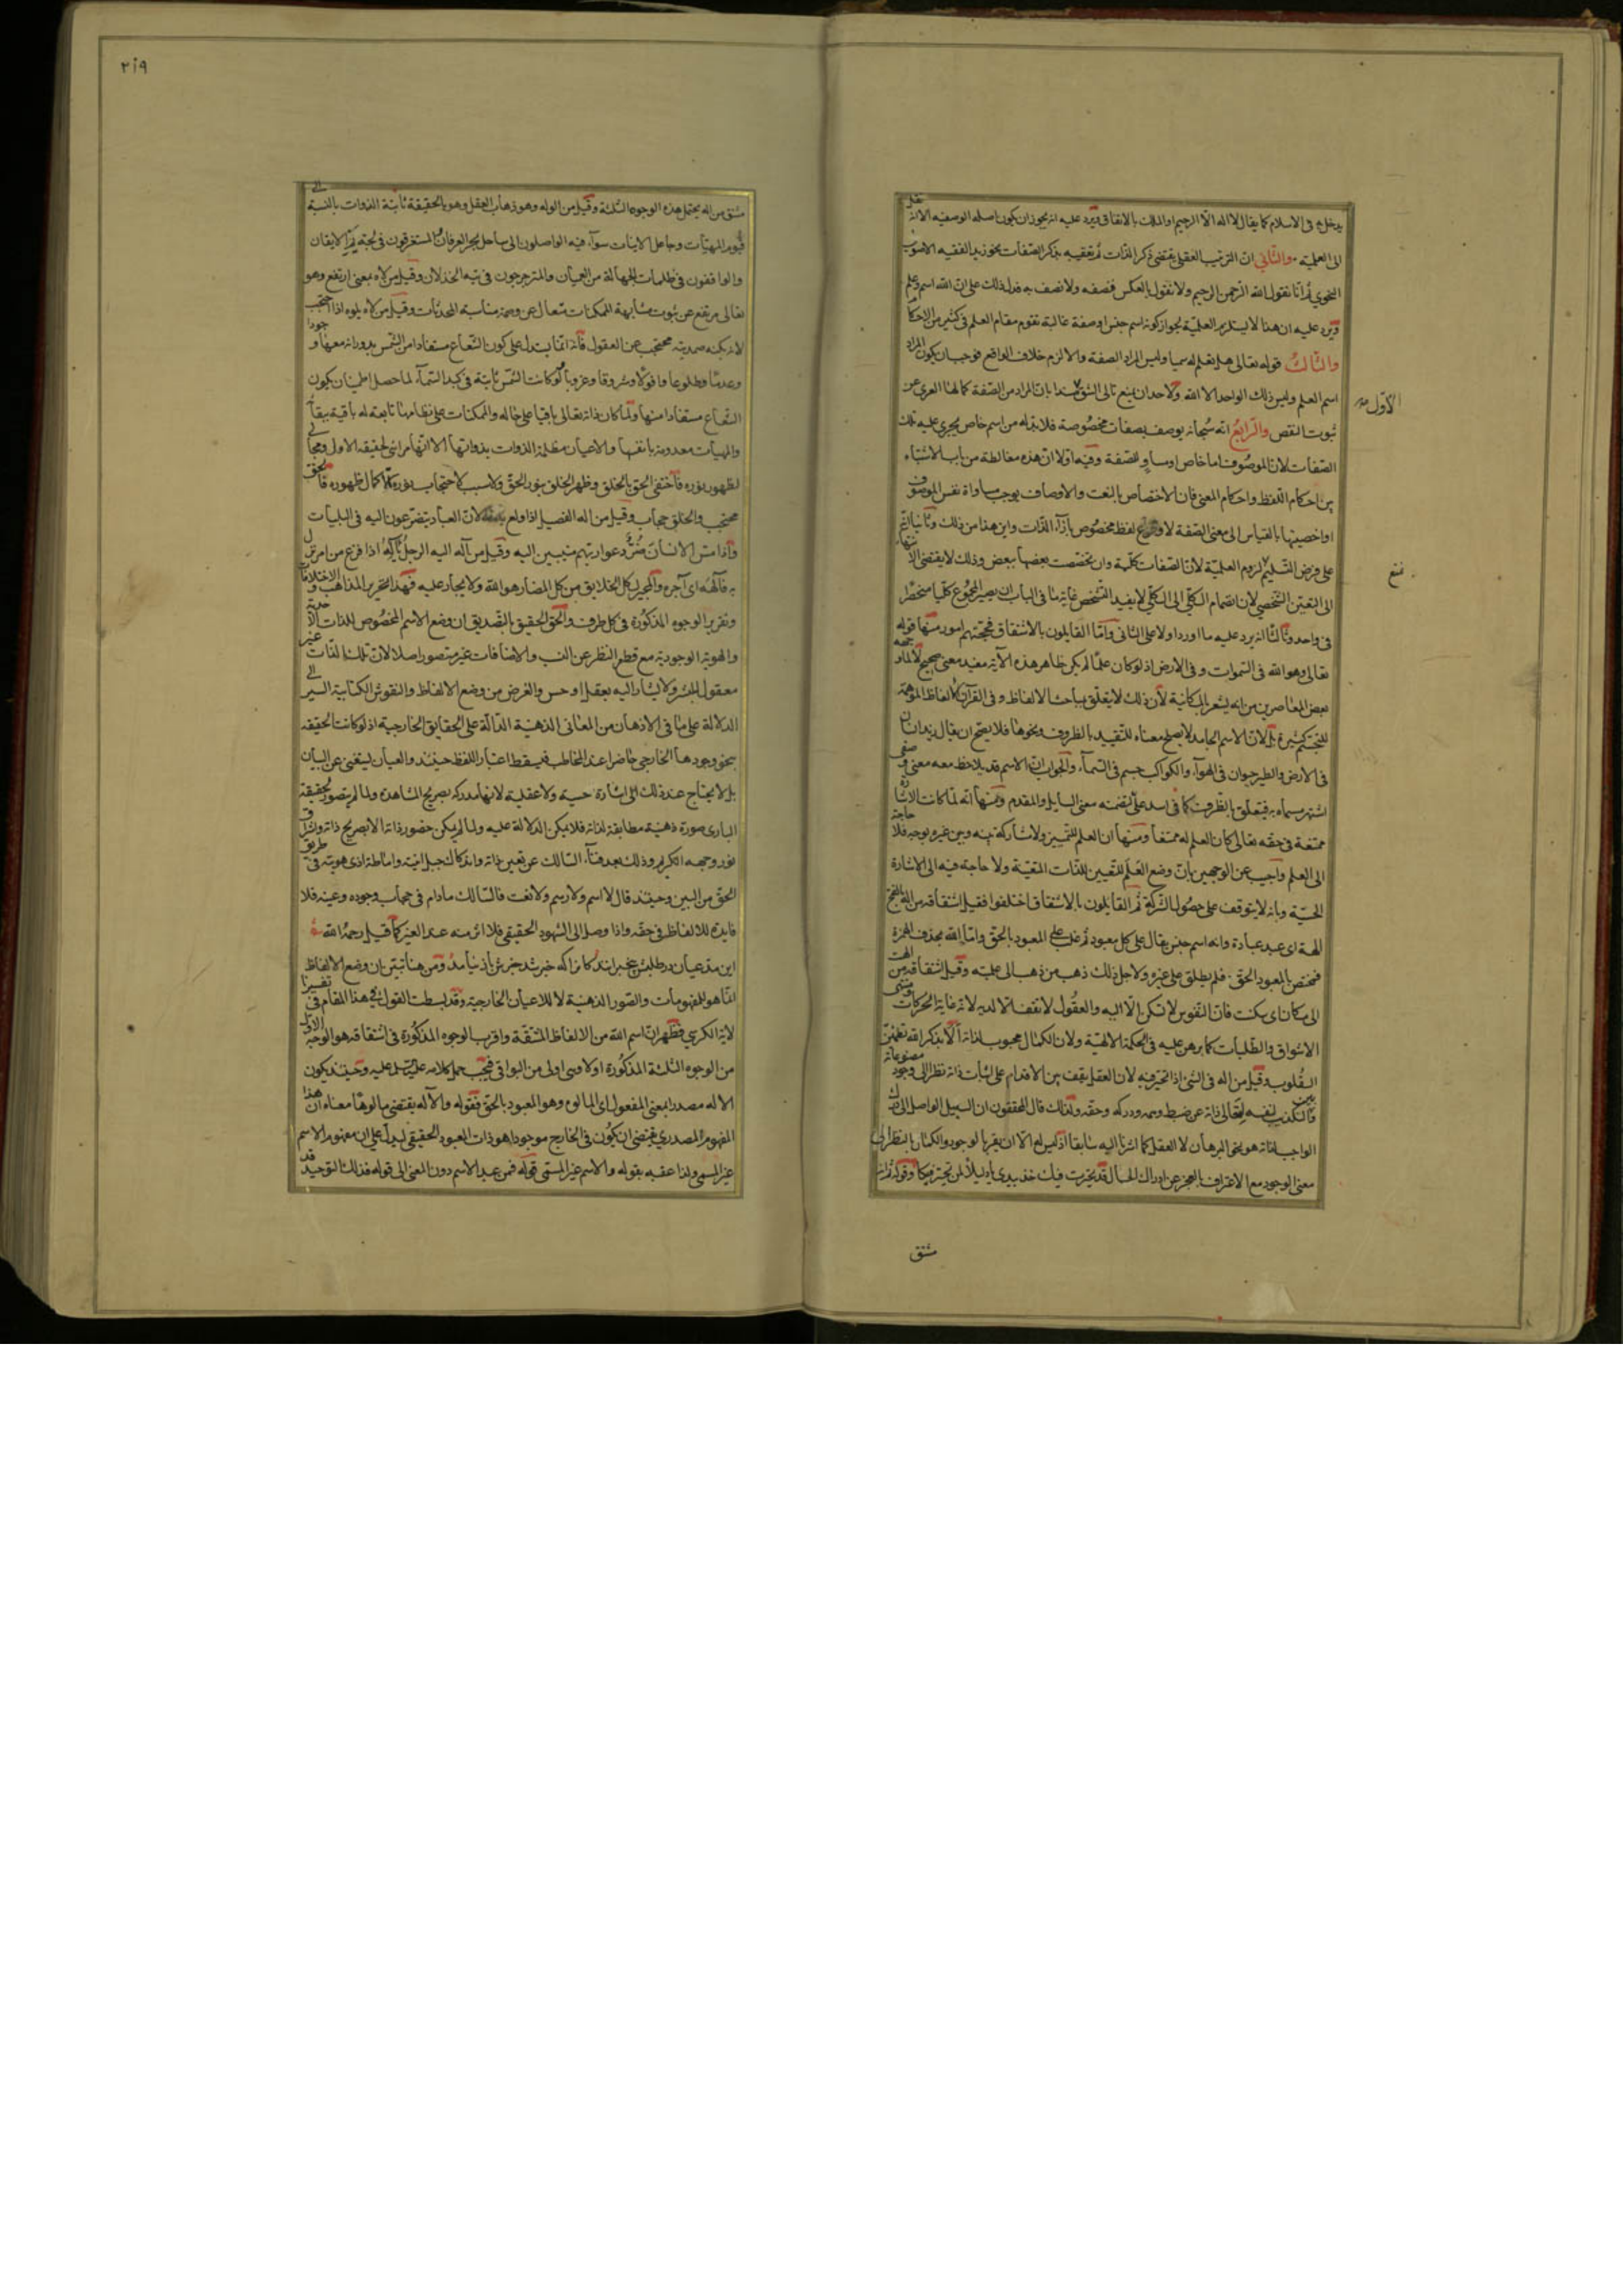 يدخل به في الاسلام كما يقال لا اله الا الرحيم او الملك بالاتفاق ويرد عليه انه يجوز ان يكون اصله الوصفيه الا انه نقل
الى العلمية والثاني ان الترتيب العقلي يقتضي ذكر الذات ثم تعقيبه بذكر الصفات نحو زيد الفقيه الاصولي
النحوي ثم انا نقول الله الرحمن الرحيم ولا نقول بالعكس فنصفه ولا نصف به فدل ذلك على ان الله اسم علم
ويرد عليه ان هذا لا يستلزم العلمية لجواز كونه اسم جنس او صفة غالبة تقوم مقام العلم في كثير من الاحكام
والثالث قوله تعالى هل تعلم له سميا وليس المراد الصفة والا لزم خلاف الواقع فوجب ان يكون المراد
اسم العلم وليس ذلك الواحد الا الله ولاحد ان يمنع تالى الشق مستندا بان المراد من الصفة كمالها العري عن
الأول
ثبوت النقص والرابع انه سبحانه يوصف بصفات مخصوصة فلا بد له من اسم خاص يجري عليه تلك
الصفات لان الموصوف اما خاص او مساو للصفة وفيه اولا ان هذه مغالطة من باب الاشتباه
بين احكام اللفظ واحكام المعنى فان الاختصاص بالنعت والاوصاف يوجب مساواة نفس الموصوف
او اخصيتها بالقياس الى معنى الصفة لا وقوع لفظ مخصوص بازاء الذات واين هذا من ذلك وثانيا انه
على فرض التسليم لزوم العلمية لان الصفات كلية وان تخصصت بعضها ببعض وذلك لا يقتضي الانتهاء
الى التعين الشخصي لان انضمام الكلي الى الكلي لا يفيد التشخص غاية ما في الباب ان يصير المجموع كليا منحصرا
في واحد وثالثا انه يرد عليه ما اورد اولا على الثاني واما القايلون بالاشتقاق فحجتهم امور منها قوله
تعالى وهو الله في السموات وفي الارض اذ لو كان علما لم يكن ظاهر هذه الآية مفيد معنى صحيح لا لما وجهه
بعض المعاصرين من انه يشعر بالمكانية لان ذلك لا يتعلق بمباحث الالفاظ وفي القرآن الالفاظ الموهمة
للتجسم كثيرة بل لان الاسم الجامد لا يصلح معناه للتقييد بالظروف ونحوها فلا يصح ان يقال زيد انسان
في الارض والطير حيوان في الهواء والكواكب جسم في السماء والجواب ان الاسم قد يلاحظ معه معنى وصفي
اشتهر مسماه به فيتعلق بالظروف كما في اسد على لتضمنه معنى الصايل والمقدم ومنها انه لما كانت الاشارة
ممتنعة في حقه تعالى كان العلم له ممتنعا ومنها ان العلم للتمييز ولا مشاركة بينه وبين غيره بوجه فلا حاجة
الى العلم واجيب عن الوجهين بان وضع العلم لتعيين للذات المتعينة ولا حاجة فيه الى الاشارة
الحسية وبانه لا يتوقف على حصول الشركة ثم القايلون بالاشتقاق اختلفوا فقيل اشتقاقه من اله بالفتح
الهة اي عبد عبادة وانه اسم جنس يقال على كل معبود ثم غلب على المعبود بالحق واما الله بحذف الهمزة
فمختص بالمعبود الحق فلم يطلق على غيره ولاجل ذلك ذهب من ذهب الى علميته وقيل اشتقاقه من الهت
الى فلان اي سكنت فان النفوس لا تسكن الا اليه والعقول لا تقف الا لديه لانه غاية الحركات ومنتهى
الاشواق والطلبات كما برهن عليه في الحكمة الالهية ولان الكمال محبوب لذاته الا بذكر الله تطمئن
القلوب وقيل من اله في الشئ اذا تحير فيه لان العقل يقف بين الاقدام على اثبات ذاته نظرا الى وجود مصنوعاته
والتكذيب لنفسه لتعالي ذاته عن ضبط وهمه ودركه وحقه ولذلك قال المحققون ان السبيل الواصل الى
الواجب لذاته هو نحو البرهان لا العقل كما اشرنا اليه سابقا اذ ليس له الا ان يقر بالوجود والكمال بالنظر الى
معنى الوجود مع الاعتراف بالعجز عن ادراك الجمال قد تحيرت فيك خذ بيدي يا دليلا لمن تحير فيكا وقوله ثم انه
مشتق
٢١٩
مشتق من اله يحتمل هذه الوجوه الثلثة وقيل من الوله وهو ذهاب العقل وهو بالحقيقة ثابتة الذوات بالنسبة الى
قيوم المهيات وجاعل الانيات سواء فيه الواصلون الى ساحل بحر العرفان المستغرقون في لجة يم الايقان
والواقفون في ظلمات الجهالة من العميان والمترجرجون في تيه الخذلان وقيل من لاه بمعنى ارتفع وهو
تعالى مرتفع عن ثبوت مشابهة الممكنات متعال عن وصمة مناسبة المحدثات وقيل من لاه يلوه اذا احتجب
لانه بكنه صمديته محتجب عن العقول فانه انما يستدل على كون الشعاع مستفادا من الشمس بدورانه معها وجودا
وعدما وطلوعا وافولا وشروقا وغروبا ولو كانت الشمس ثابتة في كبد السماء لما حصل اطمينان بكون
الشعاع مستفادا منها ولما كان ذاته تعالى باقيا على حاله والممكنات على نظامها تابعة له باقية ببقائه
والمهيات معدومة بانفسها والاعيان مظلمة الذوات بذواتها الا انها مرائى لحقيقة الاول ومجالى
لظهور نوره فاختفى الحق بالخلق وظهر الخلق بنور الحق ولا سبب لاحتجاب نوره الا كمال ظهوره فالحق
محتجب والخلق حجاب وقيل من اله الفصيل اذا ولع بامه لان العباد يتضرعون اليه في البليات
واذا مس الانسان ضر دعوا ربهم منيبين اليه وقيل من اله اليه الرجل يأله اذا فزع من امر نزل
به فآلهه اي اجاره والمجير لكل الخلايق من كل المضار هو الله ولا يجار عليه فهذا تحرير المذاهب والاختلافات
وتقرير الوجوه المذكورة في كل طرف والحق الحقيق بالتصديق ان وضع الاسم المخصوص للذات الاحدية
والهوية الوجودية مع قطع النظر عن النسب والاضافات غير متصور اصلا لان تلك الذات غير
معقول للبشر ولا يشار اليه بعقل او حس والغرض من وضع الالفاظ والنقوش الكتابية السير الى
الدلالة على ما في الاذهان من المعاني الذهنية الدالة على الحقايق الخارجية اذ لو كانت الحقيقه
بنحو وجودها الخارجي حاضرا عند المخاطب فيسقط اعتبار اللفظ حينئذ والعيان ليستغنى عن البيان
بل لا يحتاج عند ذلك الى اشارة حسية ولا عقلية لانها مدركه بصريح المشاهدة ولما لم يتصور لحقيقة
الباري صورة ذهنية مطابقة لذاته فلا يمكن الدلالة عليه ولما لم يمكن حضور ذاته الا بصريح ذاته واشراق
نور وجهه الكريم وذلك بعد فناء السالك عن تعين ذاته واندكاك جبل انيته واماطة اذى هويته في طريق
الحق من البين وحينئذ قال لا اسم ولا رسم ولا نعت فالسالك مادام في حجاب وجوده وعينه فلا
فايدة للالفاظ في حقه واذا وصل الى الشهود الحقيقي فلا اثر منه عند العين كما قيل رحمه الله
اين مدعيان در طلبش بيخبرانند كانرا كه خبر شد خبرش باز نيامد ومن هنا تبين ان وضع الالفاظ
انما هو للمفهومات والصور الذهنية لا للاعيان الخارجية وقد بسطت القول في هذا المقام في تفسيرنا
لاية الكرسي فظهر ان اسم الله من الالفاظ المشتقة واقرب الوجوه المذكورة في اشتقاقه هو الوجه الاول
من الوجوه الثلثة المذكورة اولا وهي اولى من البواقي فيجب حمل كلامه عليه وحينئذ يكون
الاله مصدرا بمعنى المفعول اي المالوه وهو المعبود بالحق فقوله والاله يقتضي مالوها معناه ان هذا
المفهوم المصدري يقتضي ان يكون في الخارج موجودا هو ذات المعبود الحقيقي ليدل على ان مفهوم الاسم
غير المسمى ولذا عقبه بقوله والاسم غير المسمى قوله فمن عبد الاسم دون المعنى الى قوله فذلك التوحيد قد